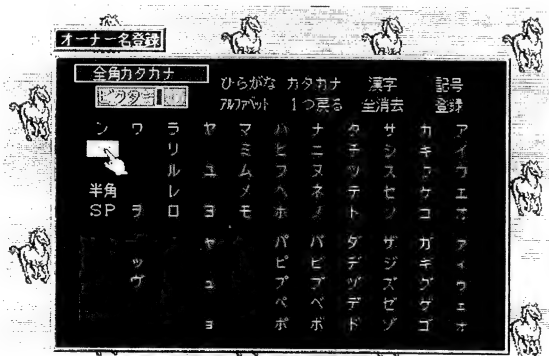 オーナー名登録
全角カタカナ
ビクター
ひらがな カタカナ 漢字 記号
アルファベット 1つ戻る 全消去 登録
ン ワ ラ ヤ マ ハ ナ タ サ カ ア
リ ミ ヒ ニ チ シ キ イ
ル ユ ム フ ヌ ツ ス ク ウ
半角 レ メ ヘ ネ テ セ ケ エ
SP ヲ ロ ヨ モ ホ ノ ト ソ コ オ
ャ パ バ ダ ザ ガ ァ
ッ ピ ビ ヂ ジ ギ ィ
ヴ ュ プ ブ ヅ ズ グ ゥ
ペ ベ デ ゼ ゲ ェ
ョ ポ ボ ド ゾ ゴ ォ